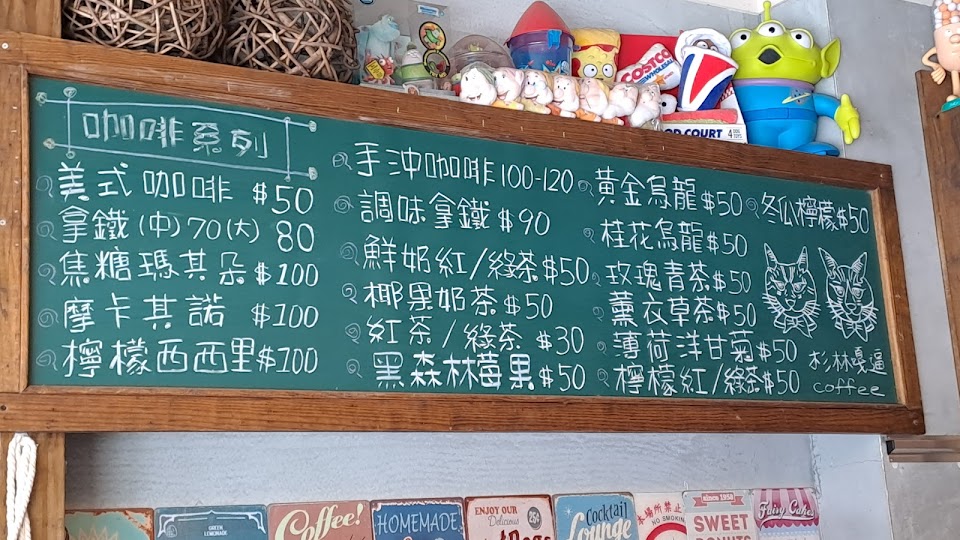 咖啡系列
美式咖啡 $50
拿鐵(中)70(大)80
焦糖瑪其朵 $100
摩卡其諾 $100
檸檬西西里$100
手沖咖啡100-120
調味拿鐵 $90
鮮奶紅/綠茶$50
椰果奶茶 $50
紅茶/綠茶 $30
黑森林莓果$50
黃金烏龍$50
桂花烏龍$50
玫瑰青茶$50
薰衣草茶$50
薄荷洋甘菊$50
檸檬紅/綠茶$50
冬瓜檸檬$50
杉林嘎逼
coffee
COSTCO
WHOLESALE
FOOD COURT
GREEN
LEMONADE
Coffee!
HOMEMADE
ENJOY OUR
Delicious
25¢
Cocktail
Lounge
本場所禁止
NO SMOKING
since 1950
SWEET
DONUTS
Fairy Cakes